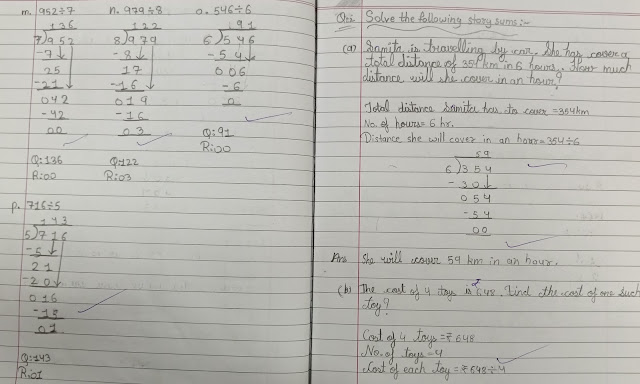 m. 952÷7
136
7)952
-7↓
25
-21↓
042
-42
00
Q:136
R:00
n. 979÷8
122
8)979
-8↓
17
-16↓
019
-16
03
Q:122
R:03
o. 546÷6
91
6)546
-54↓
006
-6
0
Q:91
R:00
p. 716÷5
143
5)716
-5↓
21
-20↓
016
-15
01
Q:143
R:01
Solve the following story sums:-
(a) Samita is travelling by car. She has cover a
total distance of 354 km in 6 hours. How much
distance will she cover in an hour?
Total distance Samita has to cover = 354km
No. of hours = 6 hr.
Distance she will cover in an hour = 354÷6
59
6)354
-30↓
054
-54
00
Ans She will cover 59 km in an hour.
(b) The cost of 4 toys is ₹648. Find the cost of one such
toy?
Cost of 4 toys = ₹648
No. of toys = 4
Cost of each toy = ₹648÷4